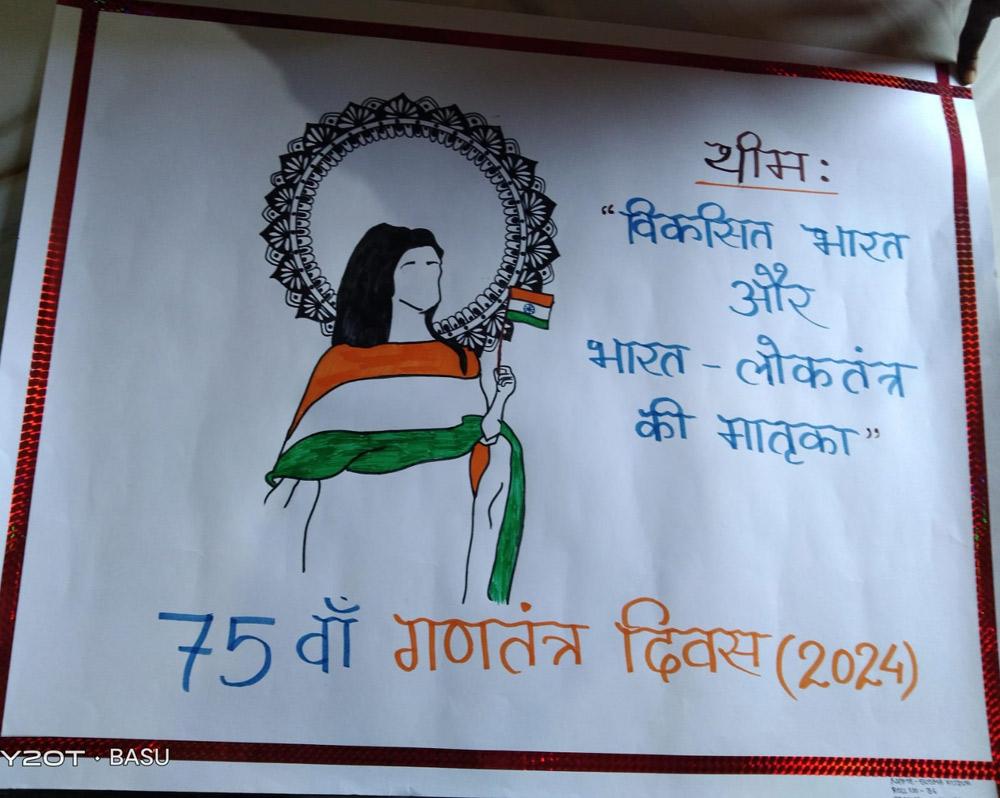 थीम:
“विकसित भारत
और
भारत - लोकतंत्र
की मातृका”
75 वाँ गणतंत्र दिवस (2024)
Y20T · BASU